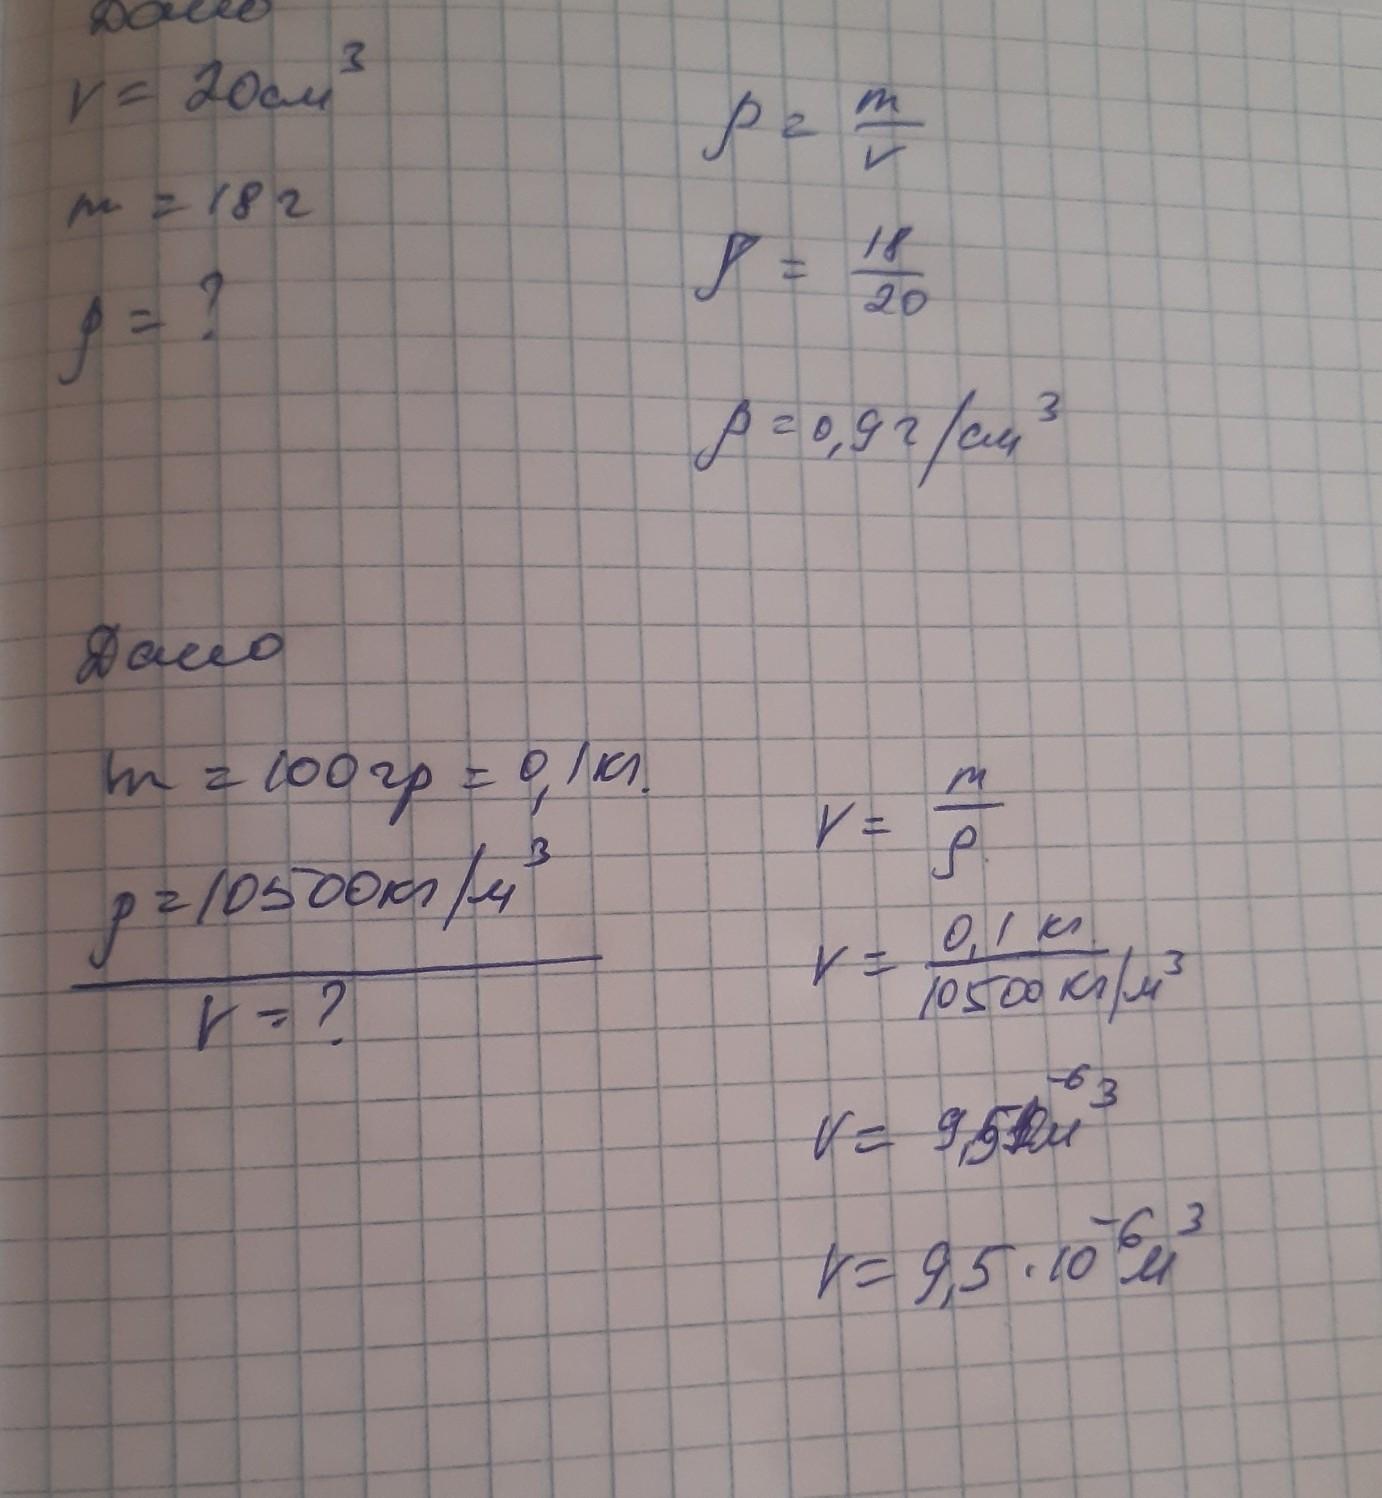 Дано
V = 20см³
m = 18 г
ρ = ?
ρ = m/V
ρ = 18/20
ρ = 0,9 г/см³
Дано
m = 100 гр = 0,1 кг.
ρ = 10500 кг/м³
V = ?
V = m/ρ
V = 0,1 кг/10500 кг/м³
V = 9,5 м⁻⁶ ³
V = 9,5 · 10⁻⁶ м³